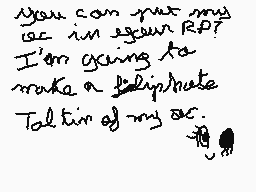 you can put my
oc in your RP?
I'm going to
make a
of my oc.